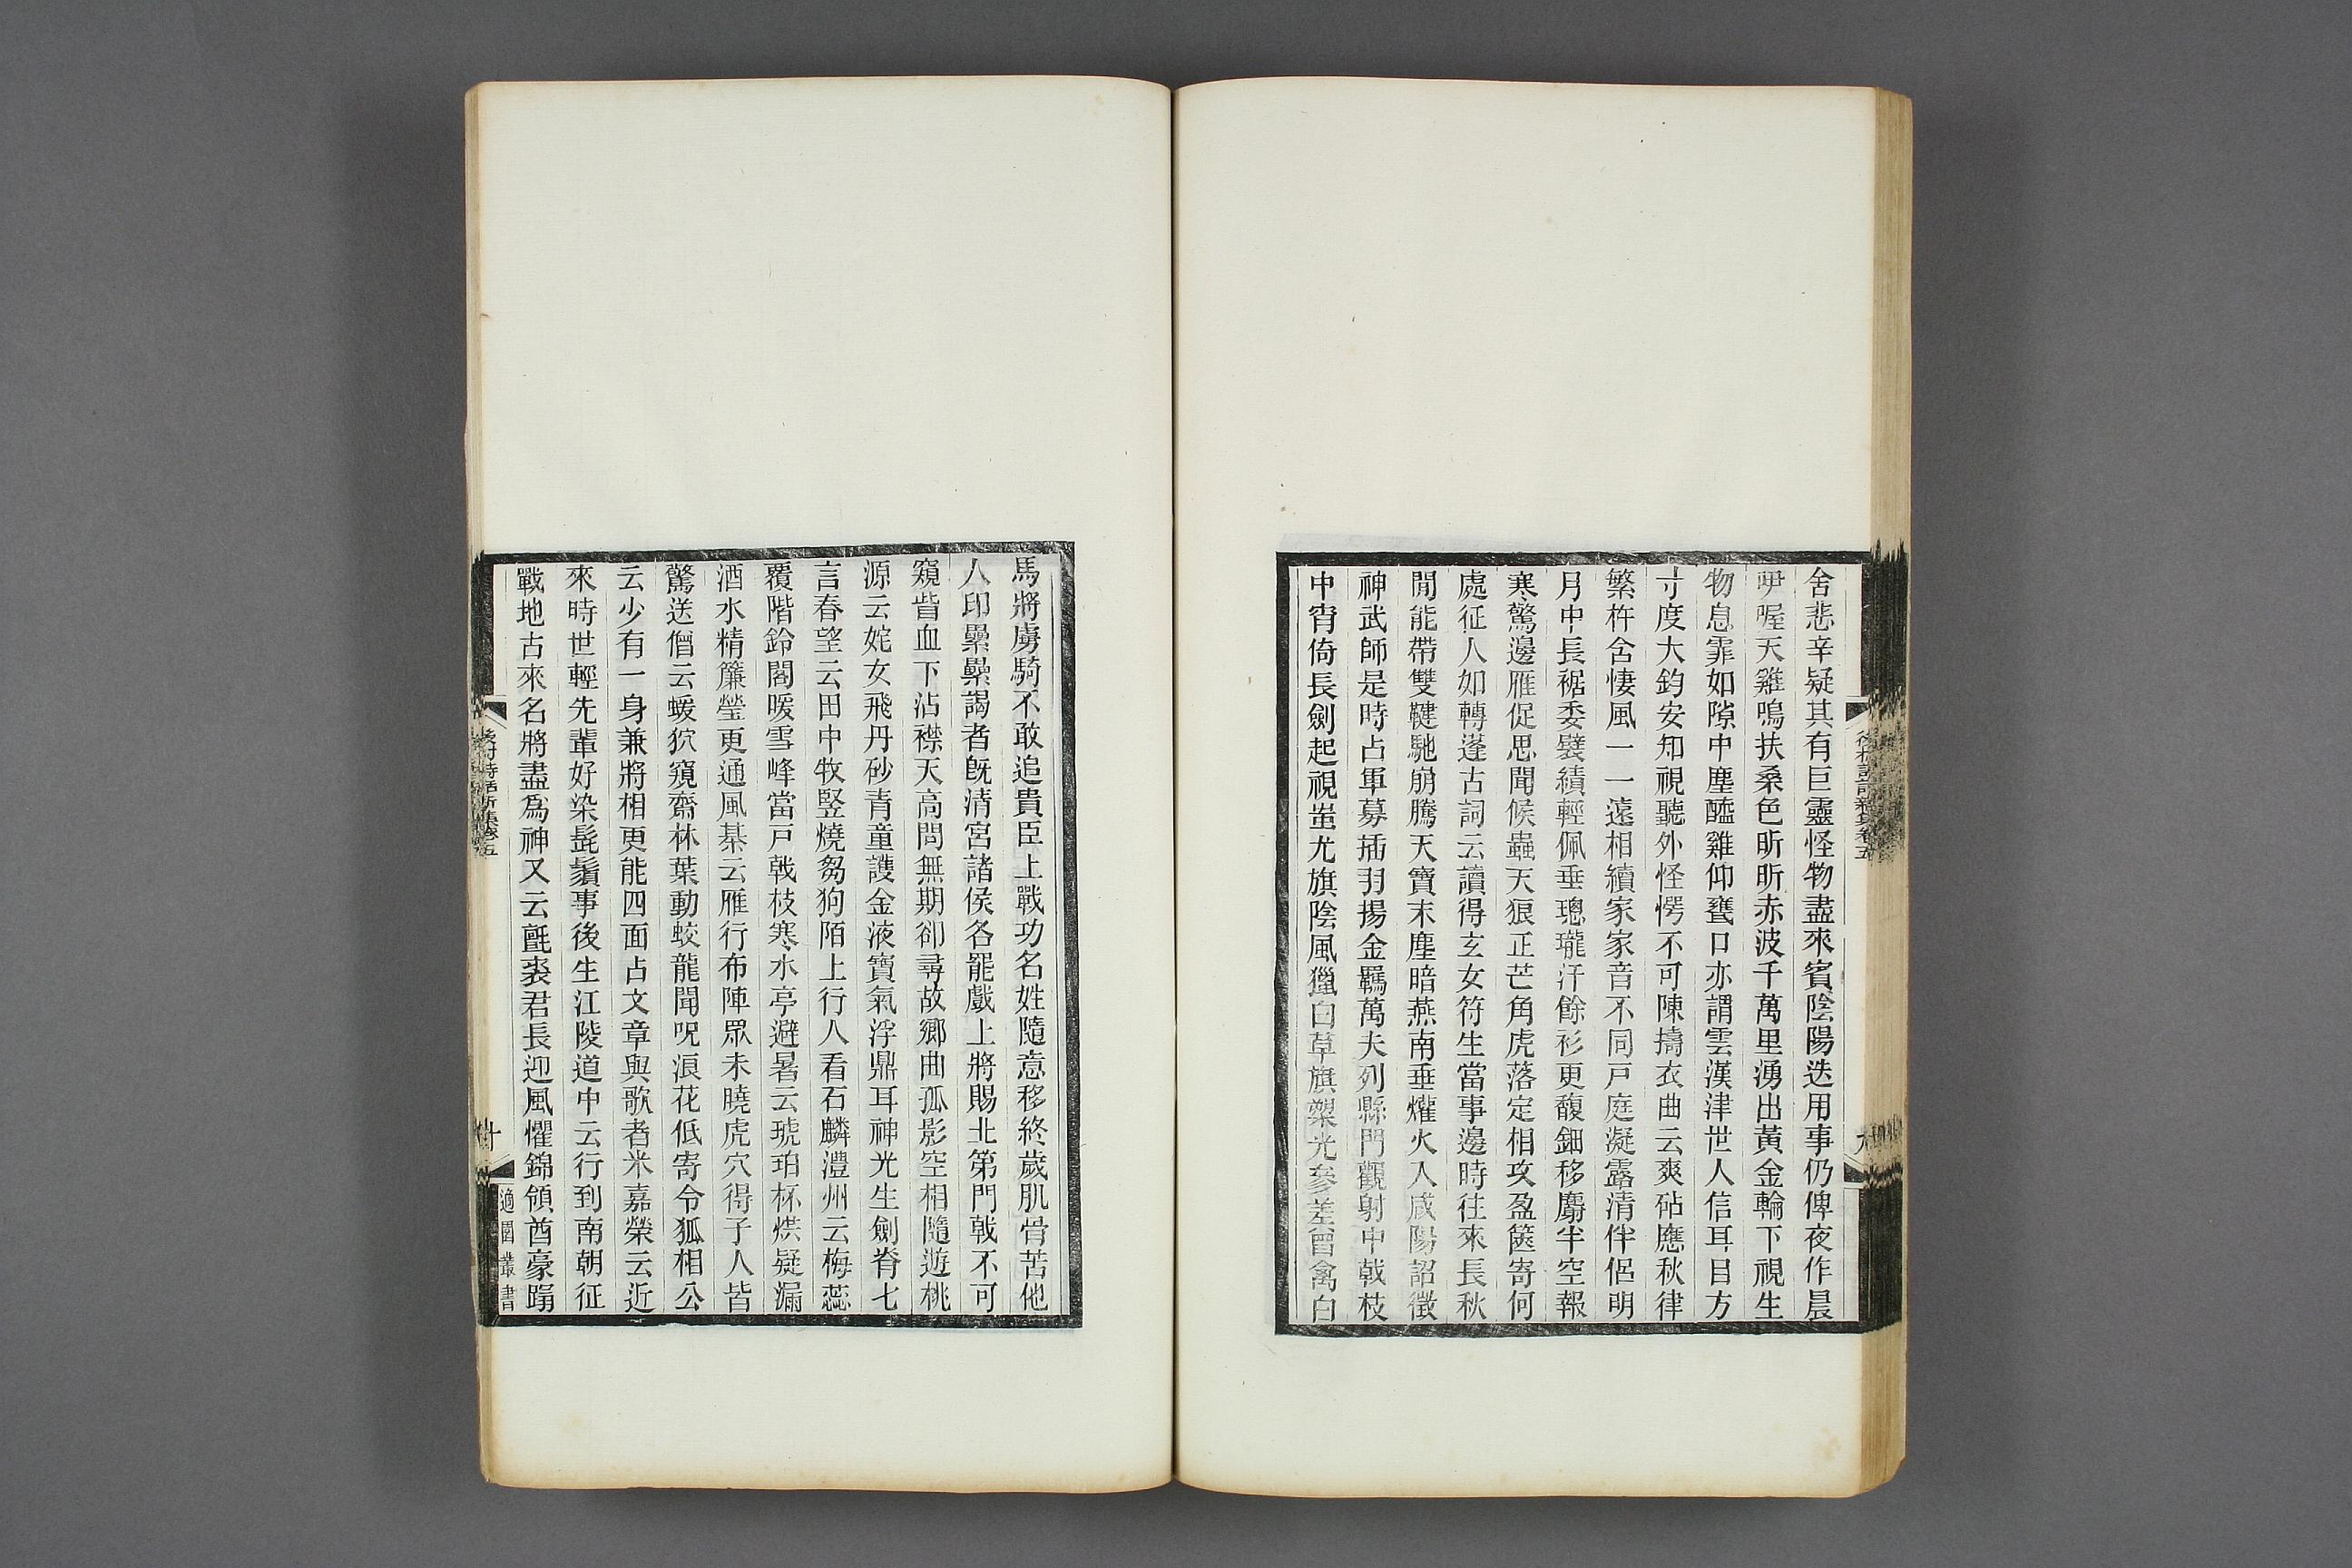 舍悲辛疑其有巨靈怪物盡來賓陰陽迭用事仍俾夜作晨
吚喔天雞鳴扶桑色昕昕赤波千萬里湧出黃金輪下視生
物息霏如隙中塵醯雞仰甕口亦謂雲漢津世人信耳目方
寸度大鈞安知視聽外怪愕不可陳擣衣曲云爽砧應秋律
繁杵含悽風一一遠相續家家音不同戸庭凝露清伴侶明
月中長裾委襞績輕佩垂璁瓏汗餘衫更馥鈿移麝半空報
寒驚邊雁促思聞候蟲天狼正芒角虎落定相攻盈篋寄何
處征人如轉蓬古詞云讀得玄女符生當事邊時往來長秋
閒能帶雙鞬馳崩騰天寶末塵暗燕南垂爟火入咸陽詔徵
神武師是時占軍募插羽揚金羈萬夫列縣門觀射中戟枝
中宵倚長劍起視蚩尤旗陰風獵白草旗槊光參差曾禽白
馬將虜騎不敢追貴臣上戰功名姓隨意移終歲肌骨苦他
人印纍纍謁者旣清宮諸侯各罷戲上將賜北第門戟不可
窺眥血下沾襟天高問無期卻尋故鄉曲孤影空相隨遊桃
源云姹女飛丹砂青童護金液寶氣浮鼎耳神光生劍脊七
言春望云田中牧豎燒芻狗陌上行人看石麟澧州云梅蕊
覆階鈴閣暖雪峰當戸戟枝寒水亭避暑云琥珀杯烘疑漏
酒水精簾瑩更通風棊云雁行布陣眾未曉虎穴得子人皆
驚送僧云蝯狖窺齋林葉動蛟龍聞呪浪花低寄令狐相公
云少有一身兼將相更能四面占文章與歌者米嘉榮云近
來時世輕先輩好染髭鬚事後生江陵道中云行到南朝征
戰地古來名將盡爲神又云氈裘君長迎風懼錦領酋豪蹋
後村詩話新集卷五
十
適園叢書